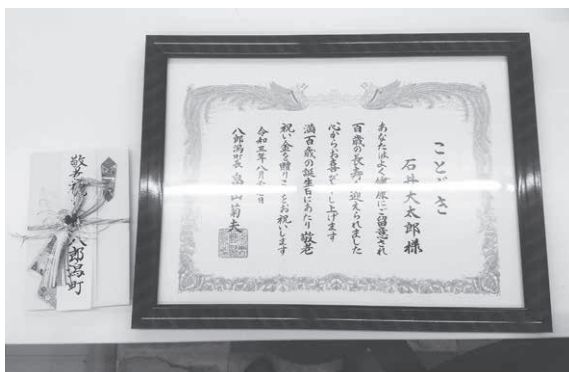 ことぶき
石井大太郎様
あなたはよく健康にご留意され
百歳の長寿を迎えられました
心からお喜び申し上げます
満百歳の誕生日にあたり敬老
祝い金を贈りこれをお祝いします
令和三年八月 日
八郎潟町長 畠山菊夫
敬老祝
八郎潟町